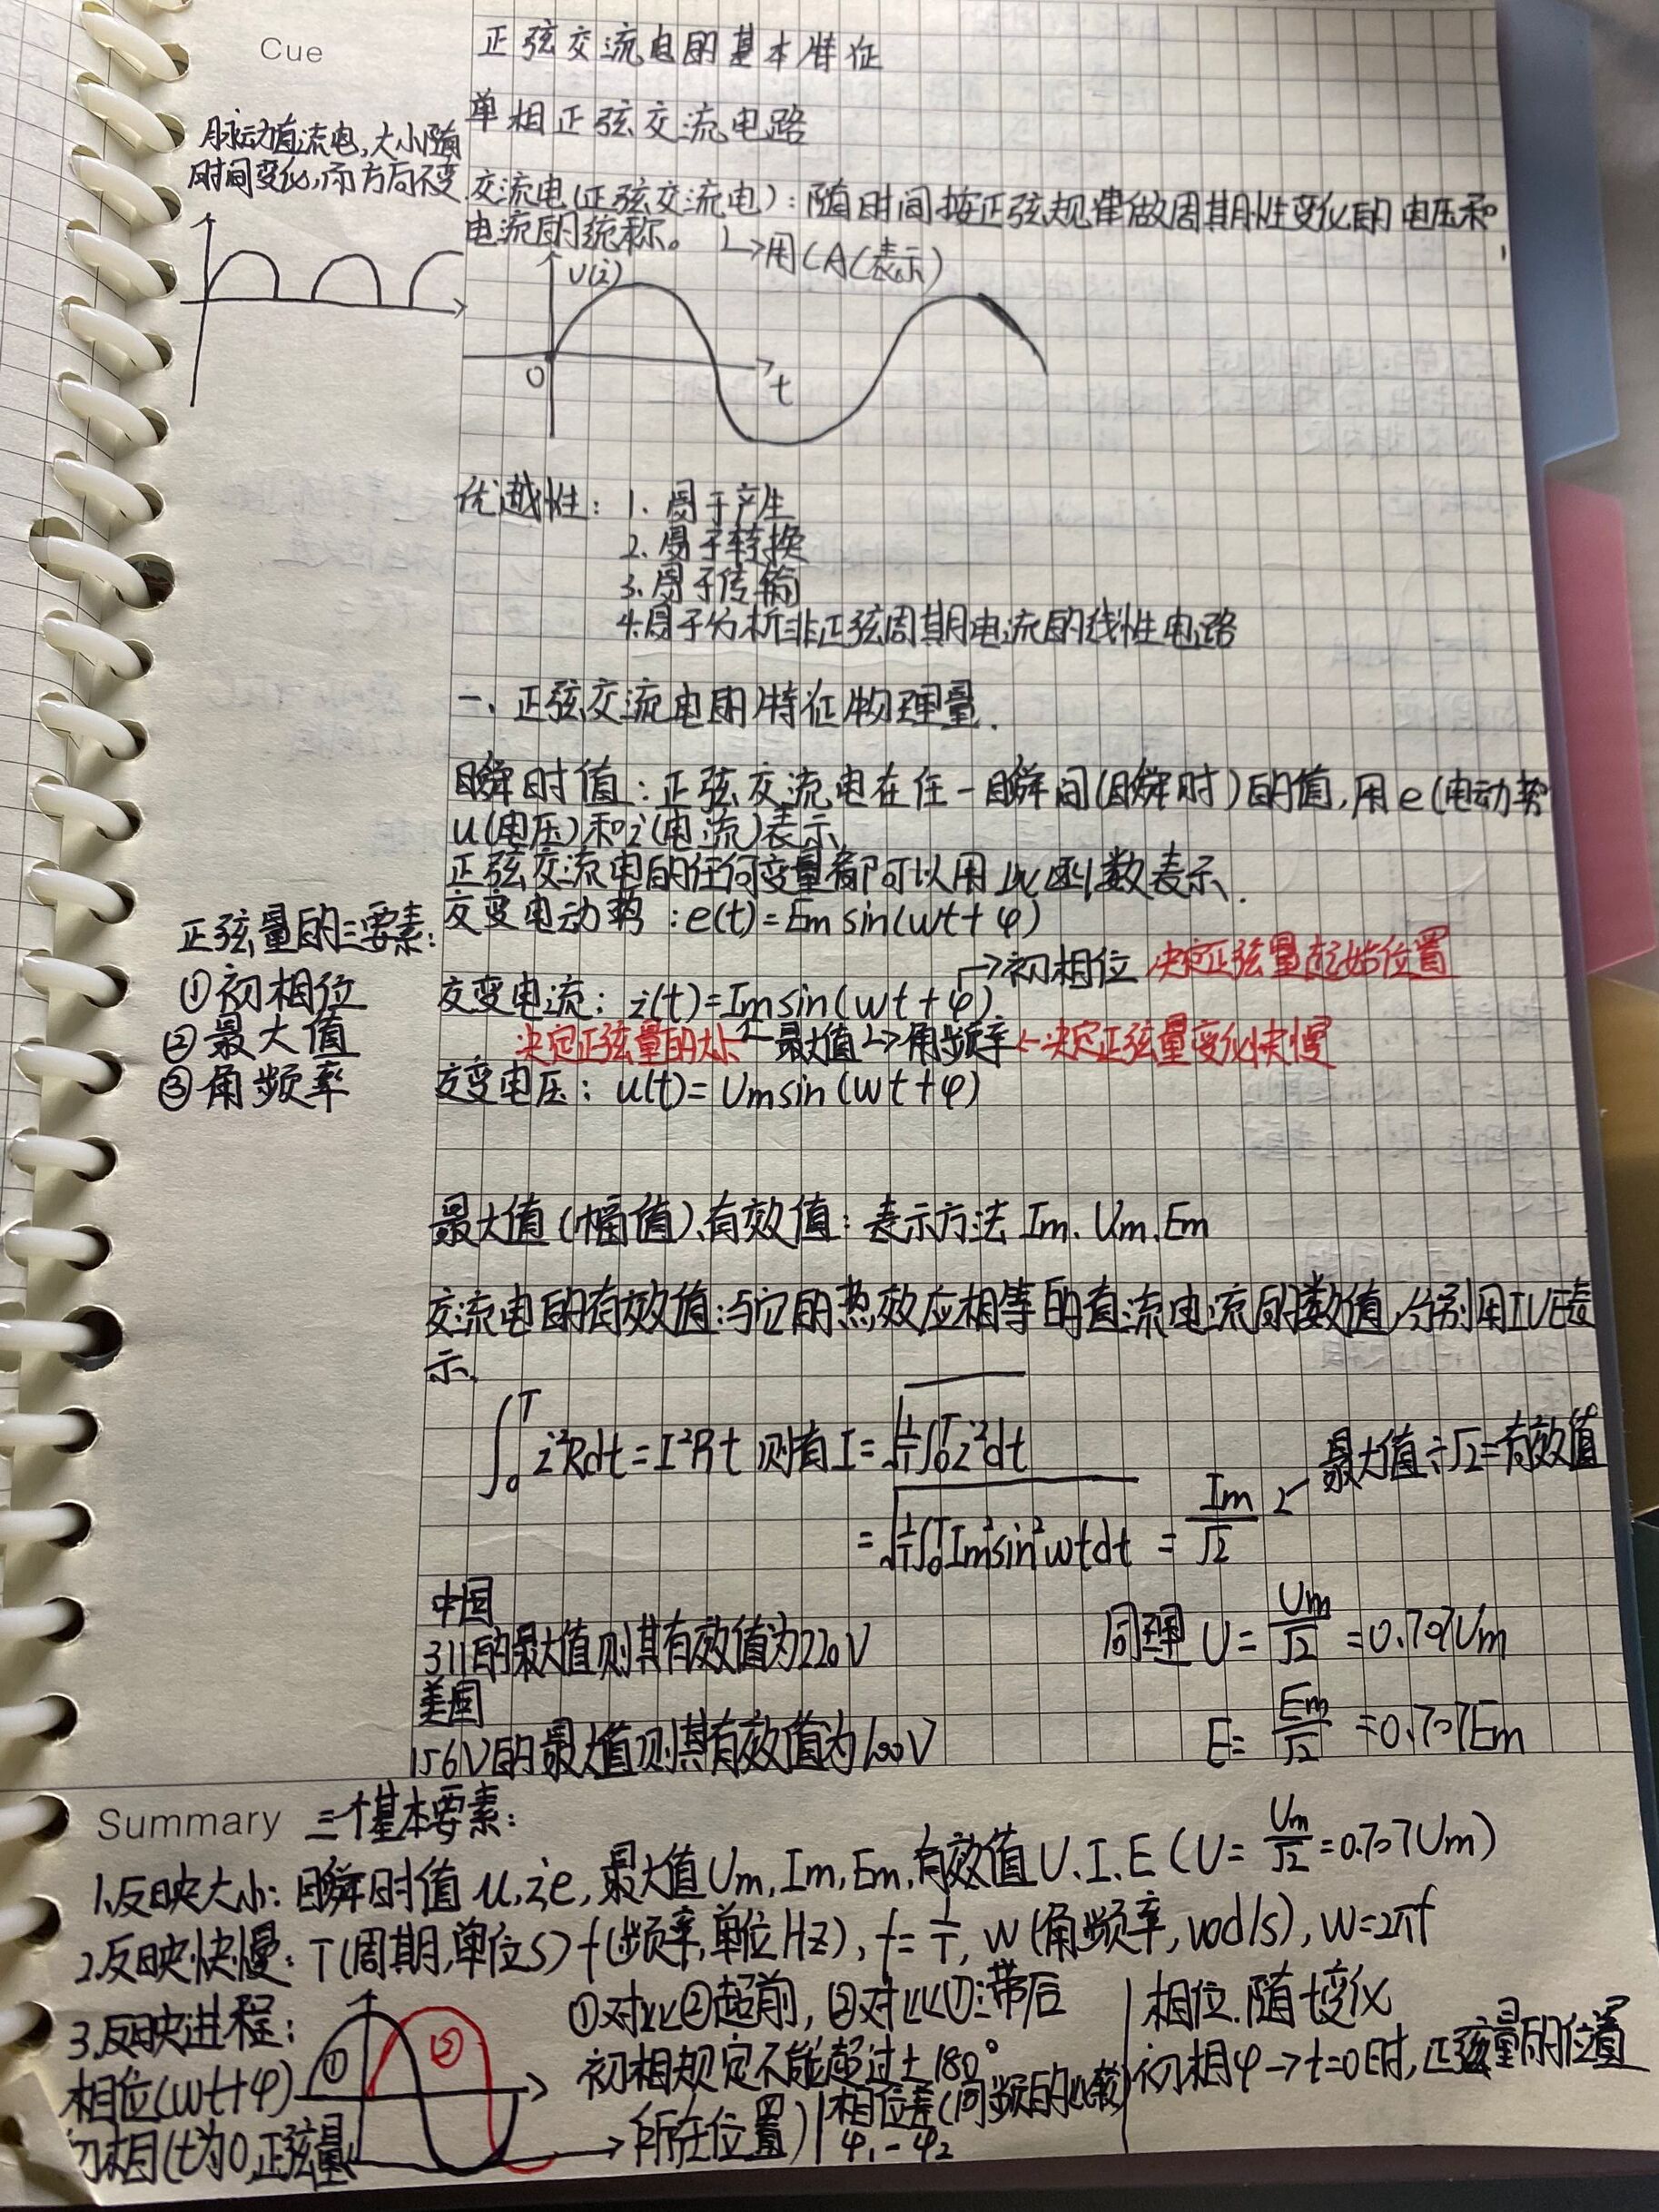 Cue
正弦交流电的基本特征
单相正弦交流电路
脉动直流电,大小随
时间变化,而方向不变
交流电(正弦交流电):随时间按正弦规律做周期性变化的电压和
电流的统称。 ↳用(AC表示)
u(i)
0
t
优越性: 1. 易于产生
2. 易于转换
3. 易于传输
4. 易于分析非正弦周期电流的线性电路
一、正弦交流电的特征物理量.
瞬时值:正弦交流电在任一瞬间(瞬时)的值,用e(电动势
u(电压)和i(电流)表示
正弦交流电的任何变量都可以用 函数表示.
正弦量的三要素:
①初相位
②最大值
③角频率
交变电动势:e(t)=Em sin(wt+φ)
→初相位 决定正弦量起始位置
交变电流: i(t)=Imsin(wt+φ)
决定正弦量的大小←最大值↳角频率←决定正弦量变化快慢
交变电压: u(t)=Umsin(wt+φ)
最大值(幅值)、有效值:表示方法 Im.Um.Em
交流电的有效值:与它的热效应相等的直流电流的数值,分别用IUE表
示.
∫₀ᵀ i²Rdt=I²Rt 则有I=√(1/T ∫₀ᵀ i²dt)
=√(1/T ∫₀ᵀ Im²sin²wtdt) = Im/√2 ← 最大值÷√2=有效值
中国
311的最大值则其有效值为220V
同理 U= Um/√2 =0.707Um
美国
156V的最大值则其有效值为100V
E= Em/√2 =0.707Em
Summary 三个基本要素:
1.反映大小:瞬时值 u,i,e,最大值Um,Im,Em,有效值U.I.E(U= Um/√2 =0.707Um)
2.反映快慢: T(周期,单位S) f(频率,单位Hz), f= 1/T, w(角频率,rad/s), w=2πf
3.反映进程:
相位(wt+φ)
初相(t为0,正弦量→所在位置)
① ②
①对比②超前,②对比①:滞后
初相规定不能超过±180°
相位差(同频的比较)
φ₁-φ₂
相位.随t变化
初相φ→t=0时,正弦量的位置